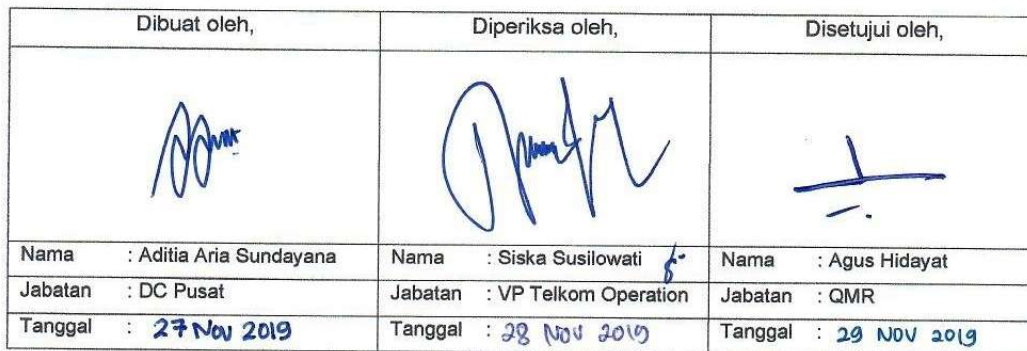 Dibuat oleh,
Diperiksa oleh,
Disetujui oleh,
Nama : Aditia Aria Sundayana
Nama : Siska Susilowati
Nama : Agus Hidayat
Jabatan : DC Pusat
Jabatan : VP Telkom Operation
Jabatan : QMR
Tanggal : 27 Nov 2019
Tanggal : 28 Nov 2019
Tanggal : 29 NOV 2019